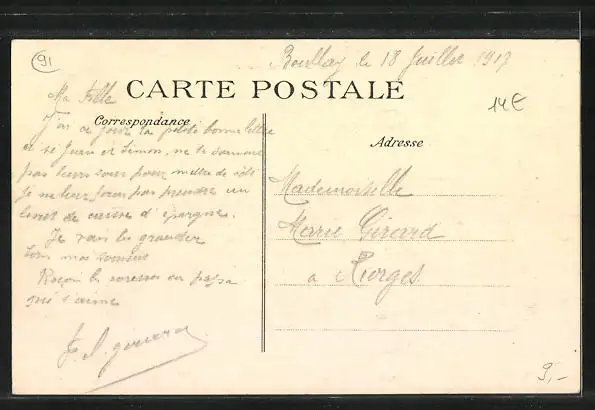 91
Boullay le 18 Juillet 1917
CARTE POSTALE
14€
Ma Fille
Correspondance
J'ai ce jour ta petite bonne lettre
et si Jean et Simon, ne te donnent
pas leurs sous pour mettre de côté
je ne leur ferai pas prendre un
livret de caisse d'épargne.
Je vais les gronder
Reçois les caresses du papa
qui t'aime
Adresse
Mademoiselle
Marie Girard
a
9,-